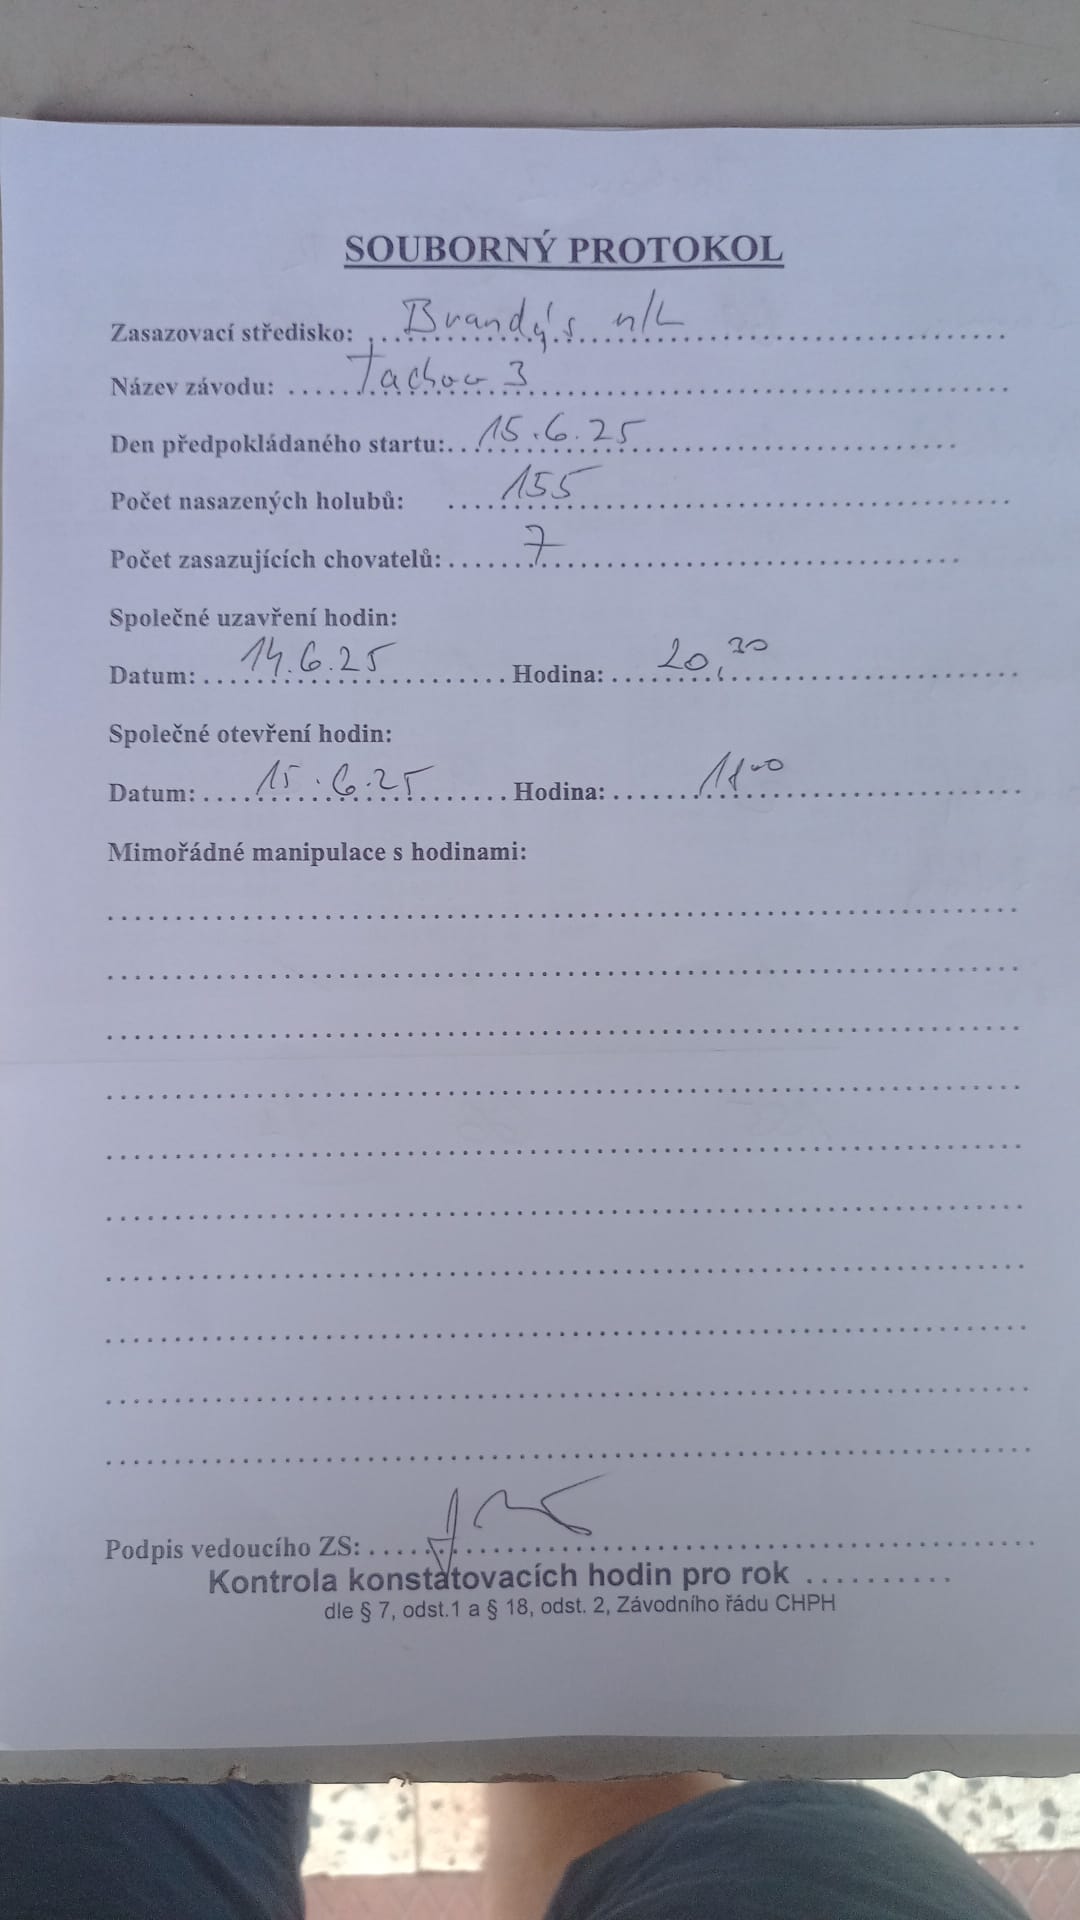 SOUBORNÝ PROTOKOL
Zasazovací středisko: Brandýs n/L
Název závodu: Tachov 3
Den předpokládaného startu: 15.6.25
Počet nasazených holubů: 155
Počet zasazujících chovatelů: 7
Společné uzavření hodin:
Datum: 14.6.25 Hodina: 20,30
Společné otevření hodin:
Datum: 15.6.25 Hodina: 1100
Mimořádné manipulace s hodinami:
Podpis vedoucího ZS:
Kontrola konstatovacích hodin pro rok ..........
dle § 7, odst.1 a § 18, odst. 2, Závodního řádu CHPH